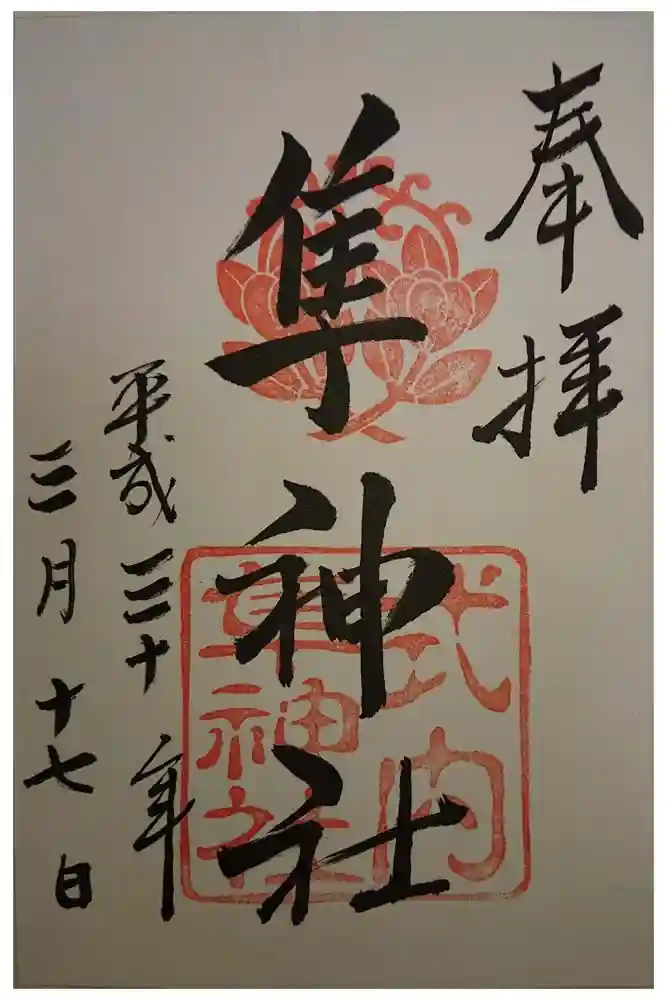 奉拝
隼神社
式内
隼神社
平成三十年
三月十七日